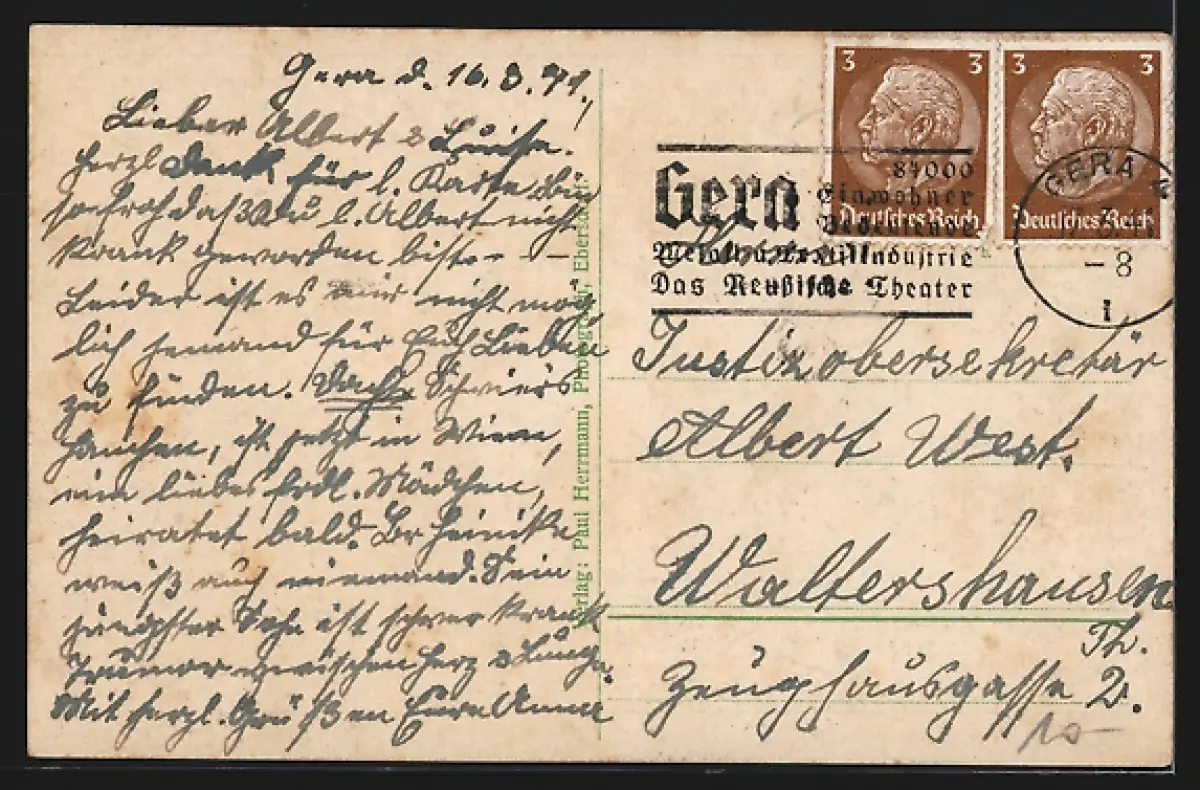 Gera d. 16.3.41.
Lieber Albert & Luise.
Herzl Dank für l. Karte bin
so froh daß Du l. Albert nicht
krank geworden bist. –
Leider ist es mir nicht mög
lich jemand für Euch Lieben
zu finden.
hanchen, ist jetzt in Wien,
ein liebes frdl. Mädchen,
heiratet bald.
weiß auch niemand. Sein
jüngster Sohn ist schwer krank
zwischen Herz & Lunge.
Mit herzl. Grüßen Eure Anna
Verlag: Paul Herrmann, Photograph, Ebersdorf
3 3
Deutsches Reich
3 3
Deutsches Reich
Gera
84000
Einwohner
Bedeutende
Metall u. Textilindustrie
Das Reußische Theater
GERA
– 8
1
Justizobersekretär
Albert West.
Waltershausen
Th.
Zeughausgasse 2.
10